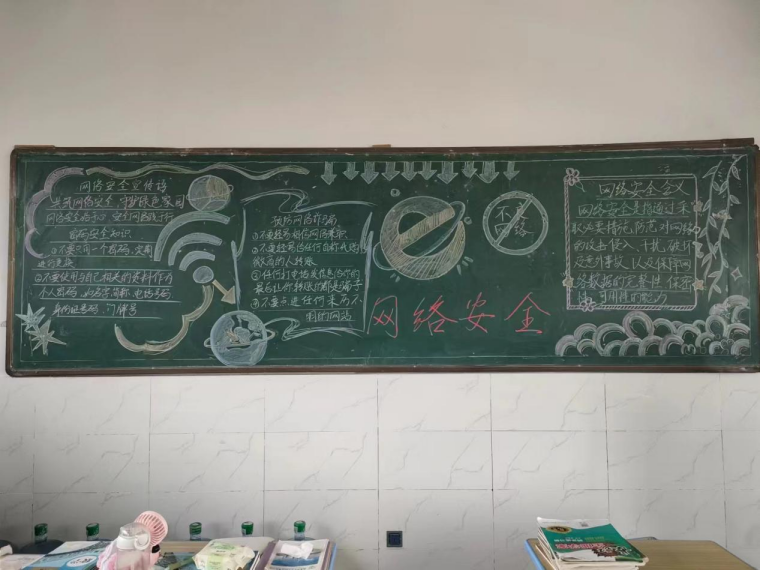 网络安全宣传语
共筑网络安全，守护绿色家园
网络安全在于心 安全网络践于行
密码安全知识
①不要只用一个密码，定期
进行更换
②不要使用与自己相关的资料作为
个人密码，如名字，简称，电话号码
身份证号码，门牌号
预防网络诈骗
①不要轻易相信网络来源
②不要轻易给任何自称
的人转账
③任何打电话发信息
最后让你转账的都是骗子
④不要点进任何来历不
明的网站
网络安全
不良
网络
网络安全含义
网络安全是指通过采
取必要措施，防范对网络
的攻击侵入、干扰、破坏
及意外事故，以及保障网
络数据的完整性、保密
性、可用性的能力